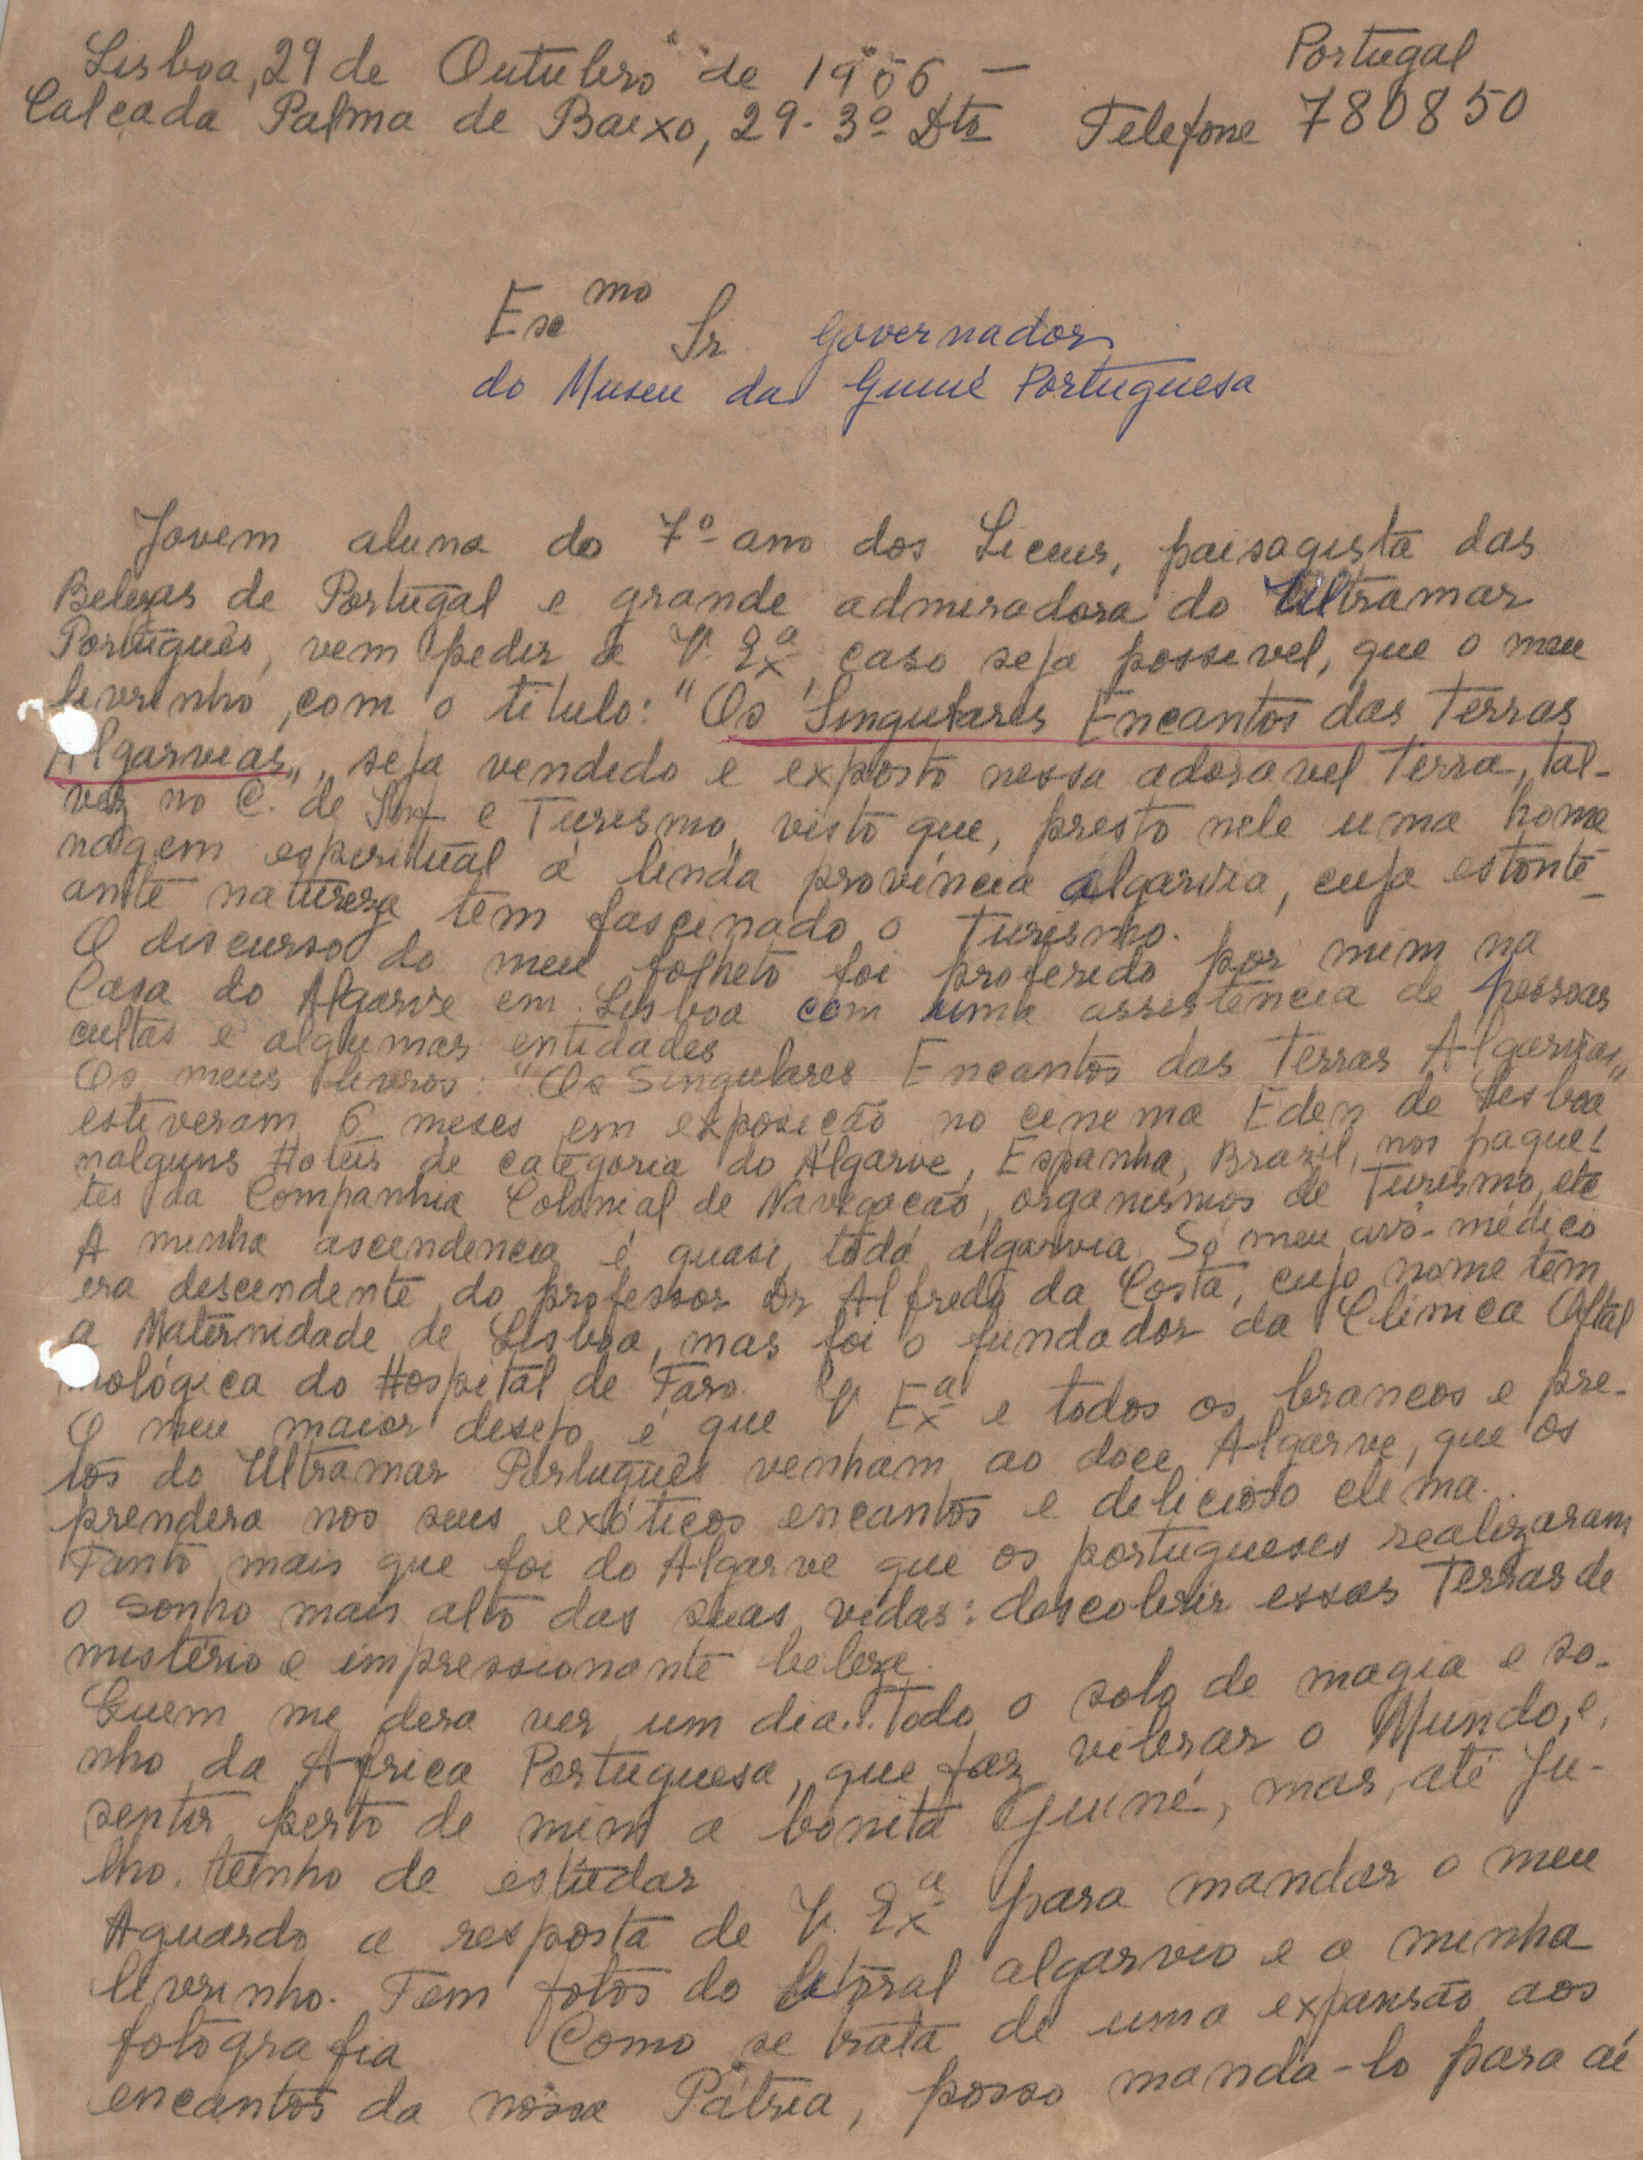 Lisboa, 29 de Outubro de 1966 — Portugal
Calçada Palma de Baixo, 29-3º Dtº Telefone 780850
Exmo Sr. Governador
do Museu da Guiné Portuguesa
Jovem aluna do 7º ano dos Liceus, paisagista das
Belezas de Portugal e grande admiradora do Ultramar
Português, vem pedir a V. Exª, caso seja possivel, que o meu
livrinho, com o titulo: "Os Singulares Encantos das Terras
Algarvias", seja vendido e exposto nessa adoravel Terra, tal-
vez no C. de Inf e Turismo, visto que, presto nele uma home
nagem espiritual á linda província algarvia, cuja estonte-
ante natureza tem fascinado o Turismo.
O discurso do meu folheto foi proferido por mim na
Casa do Algarve em Lisboa com uma assistência de pessoas
cultas e algumas entidades
Os meus livros: "Os Singulares Encantos das Terras Algarvias"
estiveram 6 meses em exposição no cinema Eden de Lisboa
nalguns Hoteis de categoria do Algarve, Espanha, Brazil, nos paque-
tes da Companhia Colonial de Navegação, organismos de Turismo, etc
A minha ascendencia é quasi toda algarvia. Só meu avô-médico
era descendente do professor Dr Alfredo da Costa, cujo nome tem
a Maternidade de Lisboa, mas foi o fundador da Clinica Oftal
mológica do Hospital de Faro.
O meu maior desejo é que V Exª e todos os brancos e pre-
tos do Ultramar Português venham ao doce Algarve, que os
prendera nos seus exóticos encantos e delicioso clima..
Tanto mais que foi do Algarve que os portugueses realizaram
o sonho mais alto das suas vidas: descobrir essas Terras de
mistério e impressionante beleza.
Quem me dera ver um dia... Todo o solo de magia e so-
nho da Africa Portuguesa, que faz vibrar o Mundo, e,
sentir perto de mim a bonita Guiné, mas, até Ju-
lho. tenho de estudar
Aguardo a resposta de V. Exª para mandar o meu
livrinho. Tem fotos do litoral algarvio e a minha
fotografia Como se trata de uma expansão aos
encantos da nossa Pátria, posso mandá-lo para aí